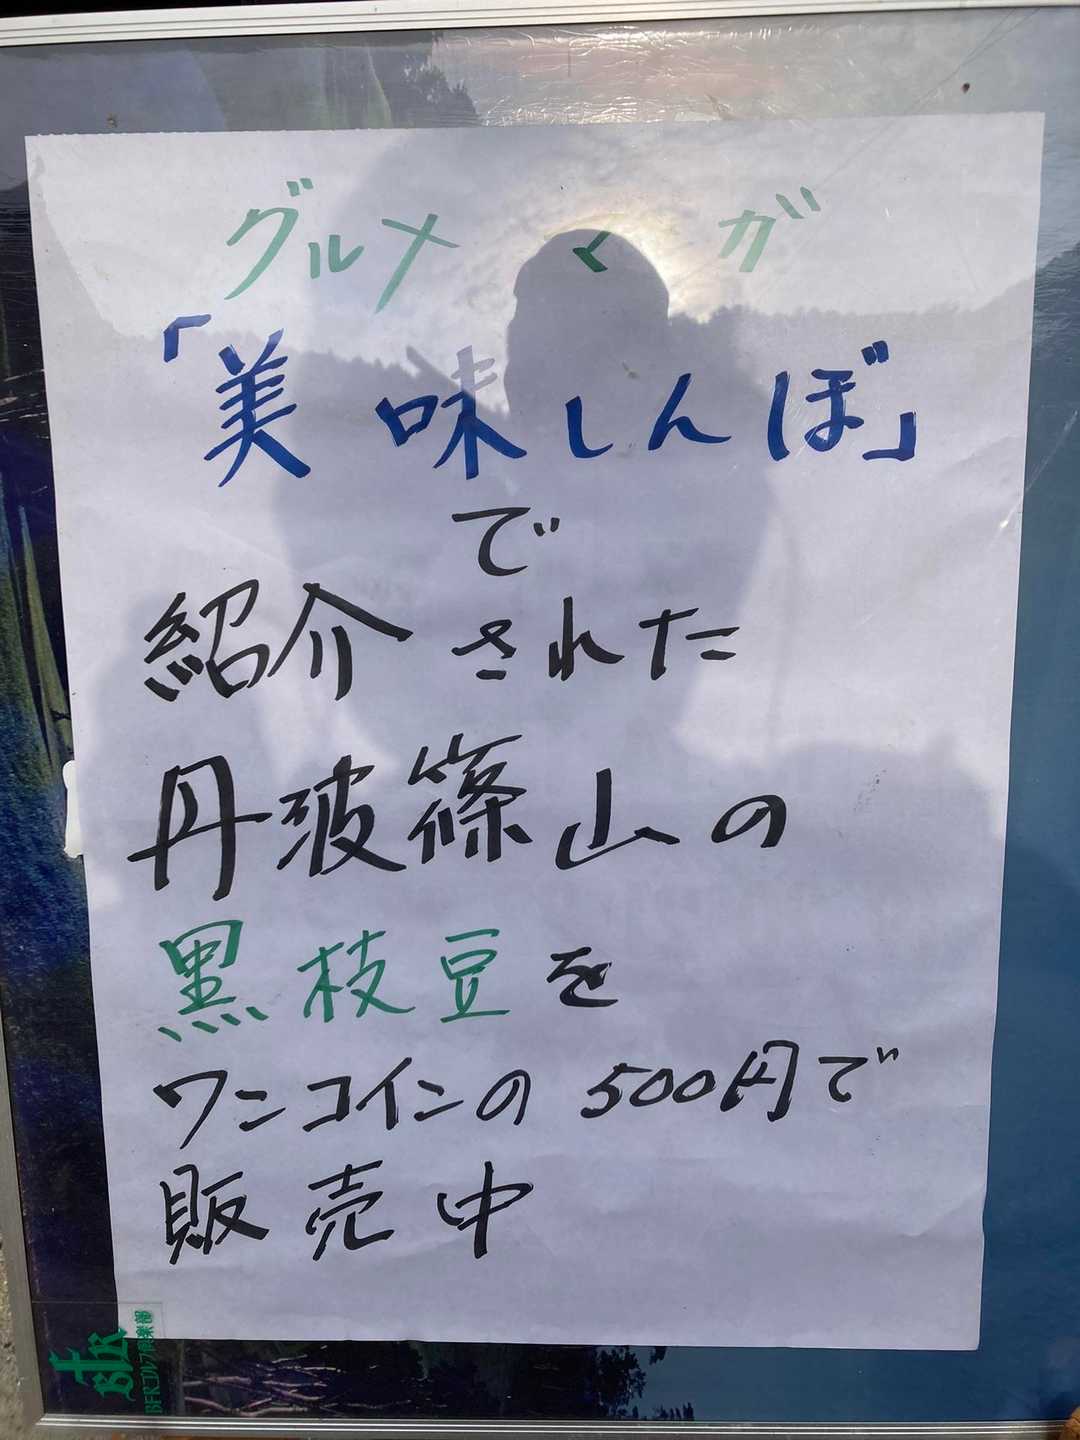 グルメマンガ
「美味しんぼ」
で
紹介された
丹波篠山の
黒枝豆を
ワンコインの500円で
販売中
BFRゴルフ倶楽部